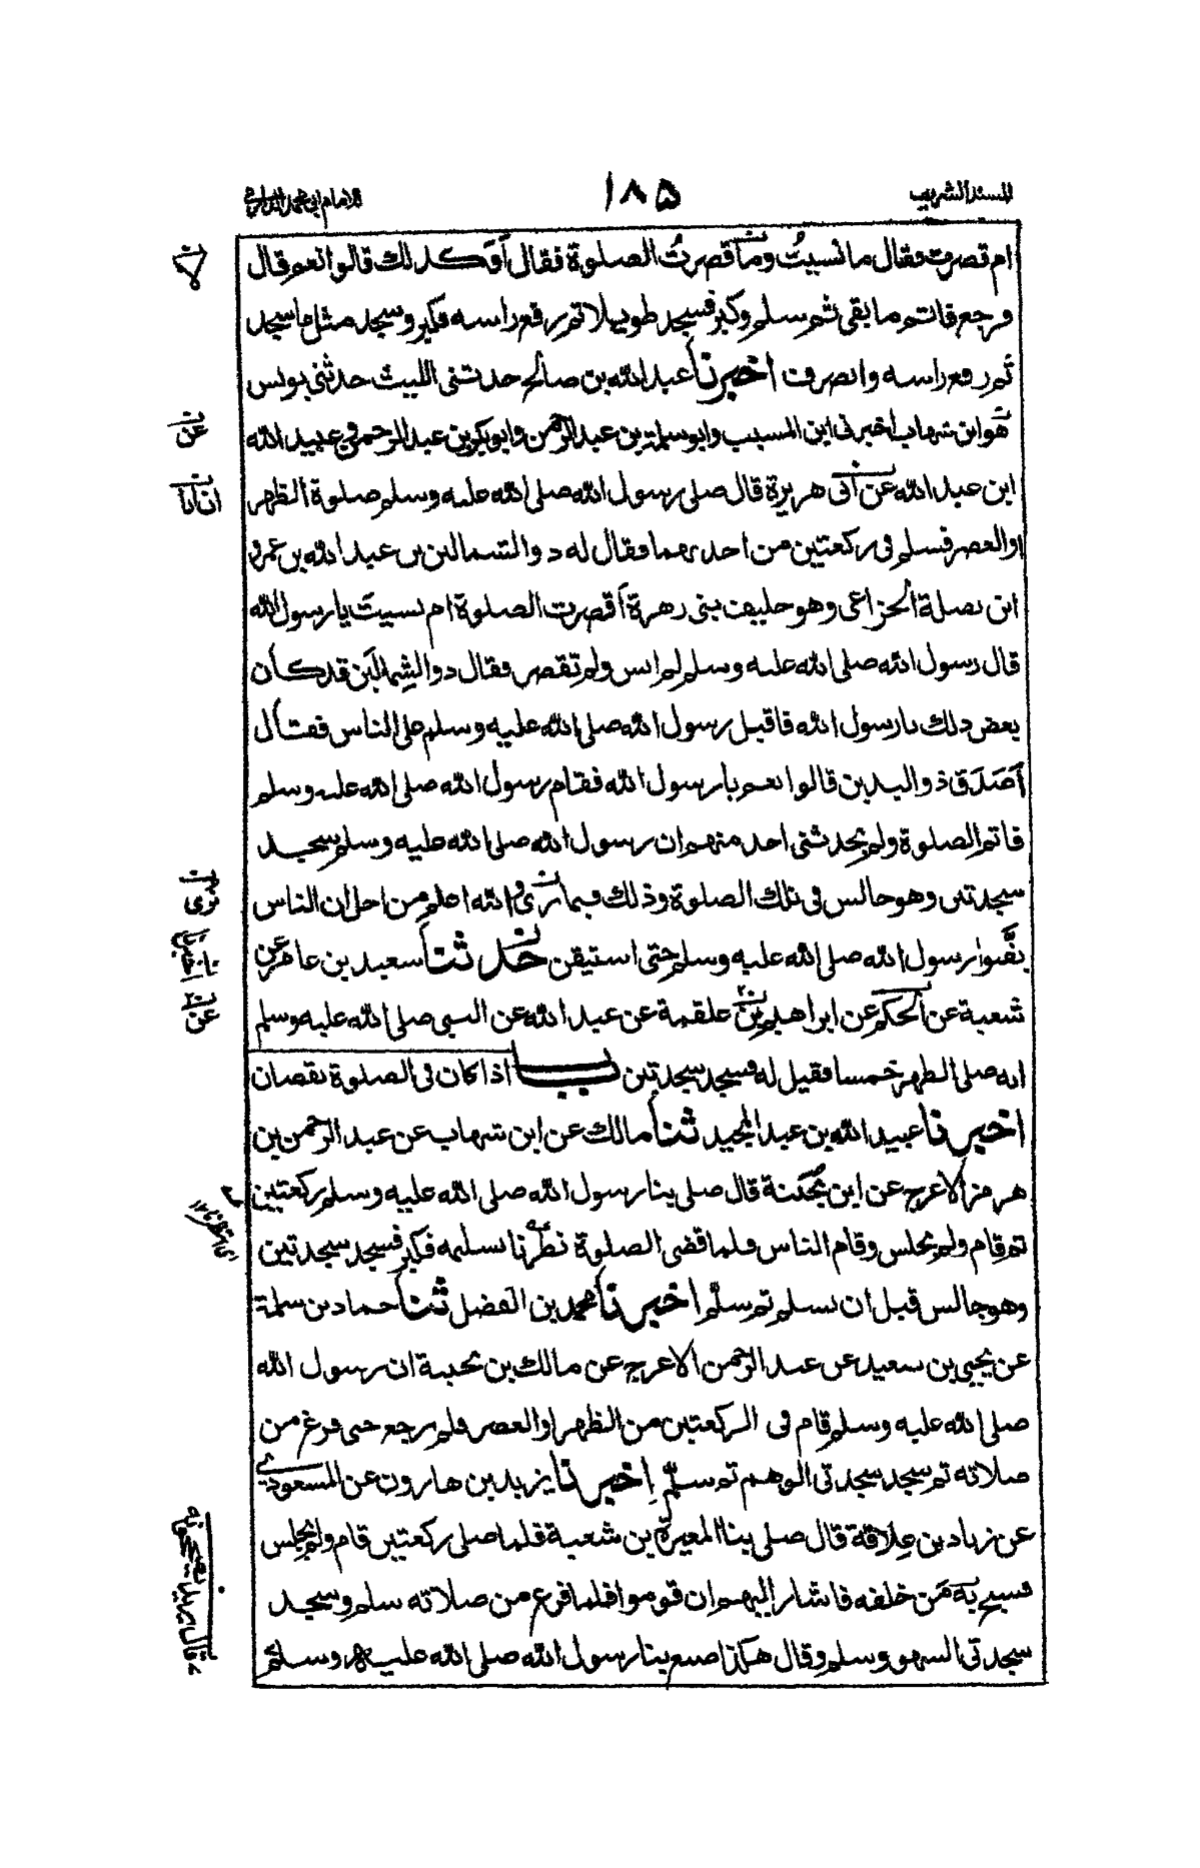 المسند الشريف ١٨٥ للامام ابي محمد الدارمي
ام قصرت فقال ما نسيتُ وما قصرتُ الصلوة فقال أوَكذلك قالوا نعم قال
فرجع فاتم ما بقى ثم سلم وكبر فسجد طويلا ثم رفع راسه فكبر وسجد مثل ما سجد
ثم رفع راسه وانصرف اخبرنا عبد الله بن صالح حدثنى الليث حدثنى يونس
هو ابن شهاب اخبرنى ابن المسيب وابو سلمة بن عبد الرحمن وابو بكر بن عبد الرحمن وعبيد الله
ابن عبد الله عن ابى هريرة قال صلى رسول الله صلى الله عليه وسلم صلوة الظهر
او العصر فسلم فى ركعتين من احدىهما فقال له ذو الشمالين بن عبد الله بن عمرو
ابن نضلة الخزاعى وهو حليف بنى زهرة أقصرت الصلوة ام نسيتَ يا رسول الله
قال رسول الله صلى الله عليه وسلم لم انس ولم تقصر فقال ذو الشمالين قد كان
بعض ذلك يا رسول الله فاقبل رسول الله صلى الله عليه وسلم على الناس فقال
أصَدَق ذو اليدين قالوا نعم يا رسول الله فقام رسول الله صلى الله عليه وسلم
فاتم الصلوة ولم يحدثنى احد منهم ان رسول الله صلى الله عليه وسلم سجد
سجدتين وهو جالس فى تلك الصلوة وذلك فيما نرى والله اعلم من اجل ان الناس
يقَّنوا رسول الله صلى الله عليه وسلم حتى استيقن حدثنا سعيد بن عامر عن
شعبة عن الحكم عن ابراهيم بن علقمة عن عبد الله عن النبى صلى الله عليه وسلم
انه صلى الظهر خمسا فقيل له فسجد سجدتين باب اذا كان فى الصلوة نقصان
اخبرنا عبيد الله بن عبد المجيد ثنا مالك عن ابن شهاب عن عبد الرحمن بن
هرمز الاعرج عن ابن بُحَينة قال صلى بنا رسول الله صلى الله عليه وسلم ركعتين
ثم قام ولم يجلس وقام الناس فلما قضى الصلوة نظرنا تسليمه فكبر فسجد سجدتين
وهو جالس قبل ان يسلم ثم سلَّم اخبرنا محمد بن الفضل ثنا حماد بن سلمة
عن يحيى بن سعيد عن عبد الرحمن الاعرج عن مالك بن بحينة ان رسول الله
صلى الله عليه وسلم قام فى الركعتين من الظهر او العصر فلم يرجع حتى فرغ من
صلاته ثم سجد سجدتى الوهم ثم سلَّم اخبرنا يزيد بن هارون عن المسعودى
عن زياد بن عِلاقة قال صلى بنا المغيرة بن شعبة فلما صلى ركعتين قام ولم يجلس
فسبح به مَن خلفه فاشار اليهم ان قوموا فلما فرغ من صلاته سلم وسجد
سجدتى السهو وسلم وقال هكذا صنع بنا رسول الله صلى الله عليه وسلم
لا
عن
ان ابا
نرى
عن